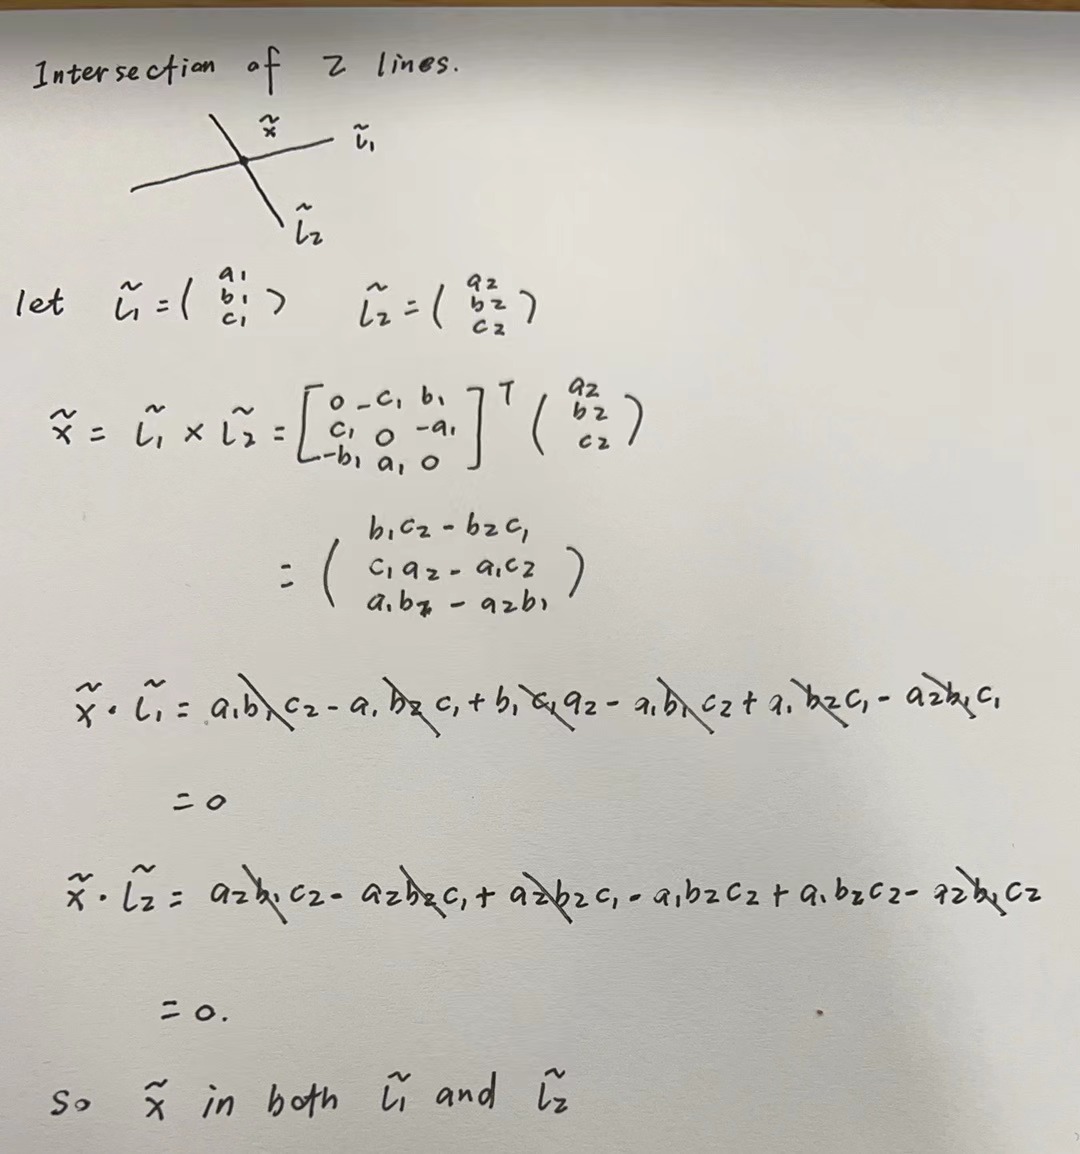 Intersection of 2 lines.
x̃ l̃₁
l̃₂
let l̃₁ = ( a₁ b₁ c₁ ) l̃₂ = ( a₂ b₂ c₂ )
x̃ = l̃₁ × l̃₂ = [ 0 -c₁ b₁
c₁ 0 -a₁
-b₁ a₁ 0 ]ᵀ ( a₂ b₂ c₂ )
= ( b₁c₂ - b₂c₁
c₁a₂ - a₁c₂
a₁b₂ - a₂b₁ )
x̃ · l̃₁ = a₁b₁c₂ - a₁b₂c₁ + b₁c₁a₂ - a₁b₁c₂ + a₁b₂c₁ - a₂b₁c₁
= 0
x̃ · l̃₂ = a₂b₁c₂ - a₂b₂c₁ + a₂b₂c₁ - a₁b₂c₂ + a₁b₂c₂ - a₂b₁c₂
= 0.
So x̃ in both l̃₁ and l̃₂